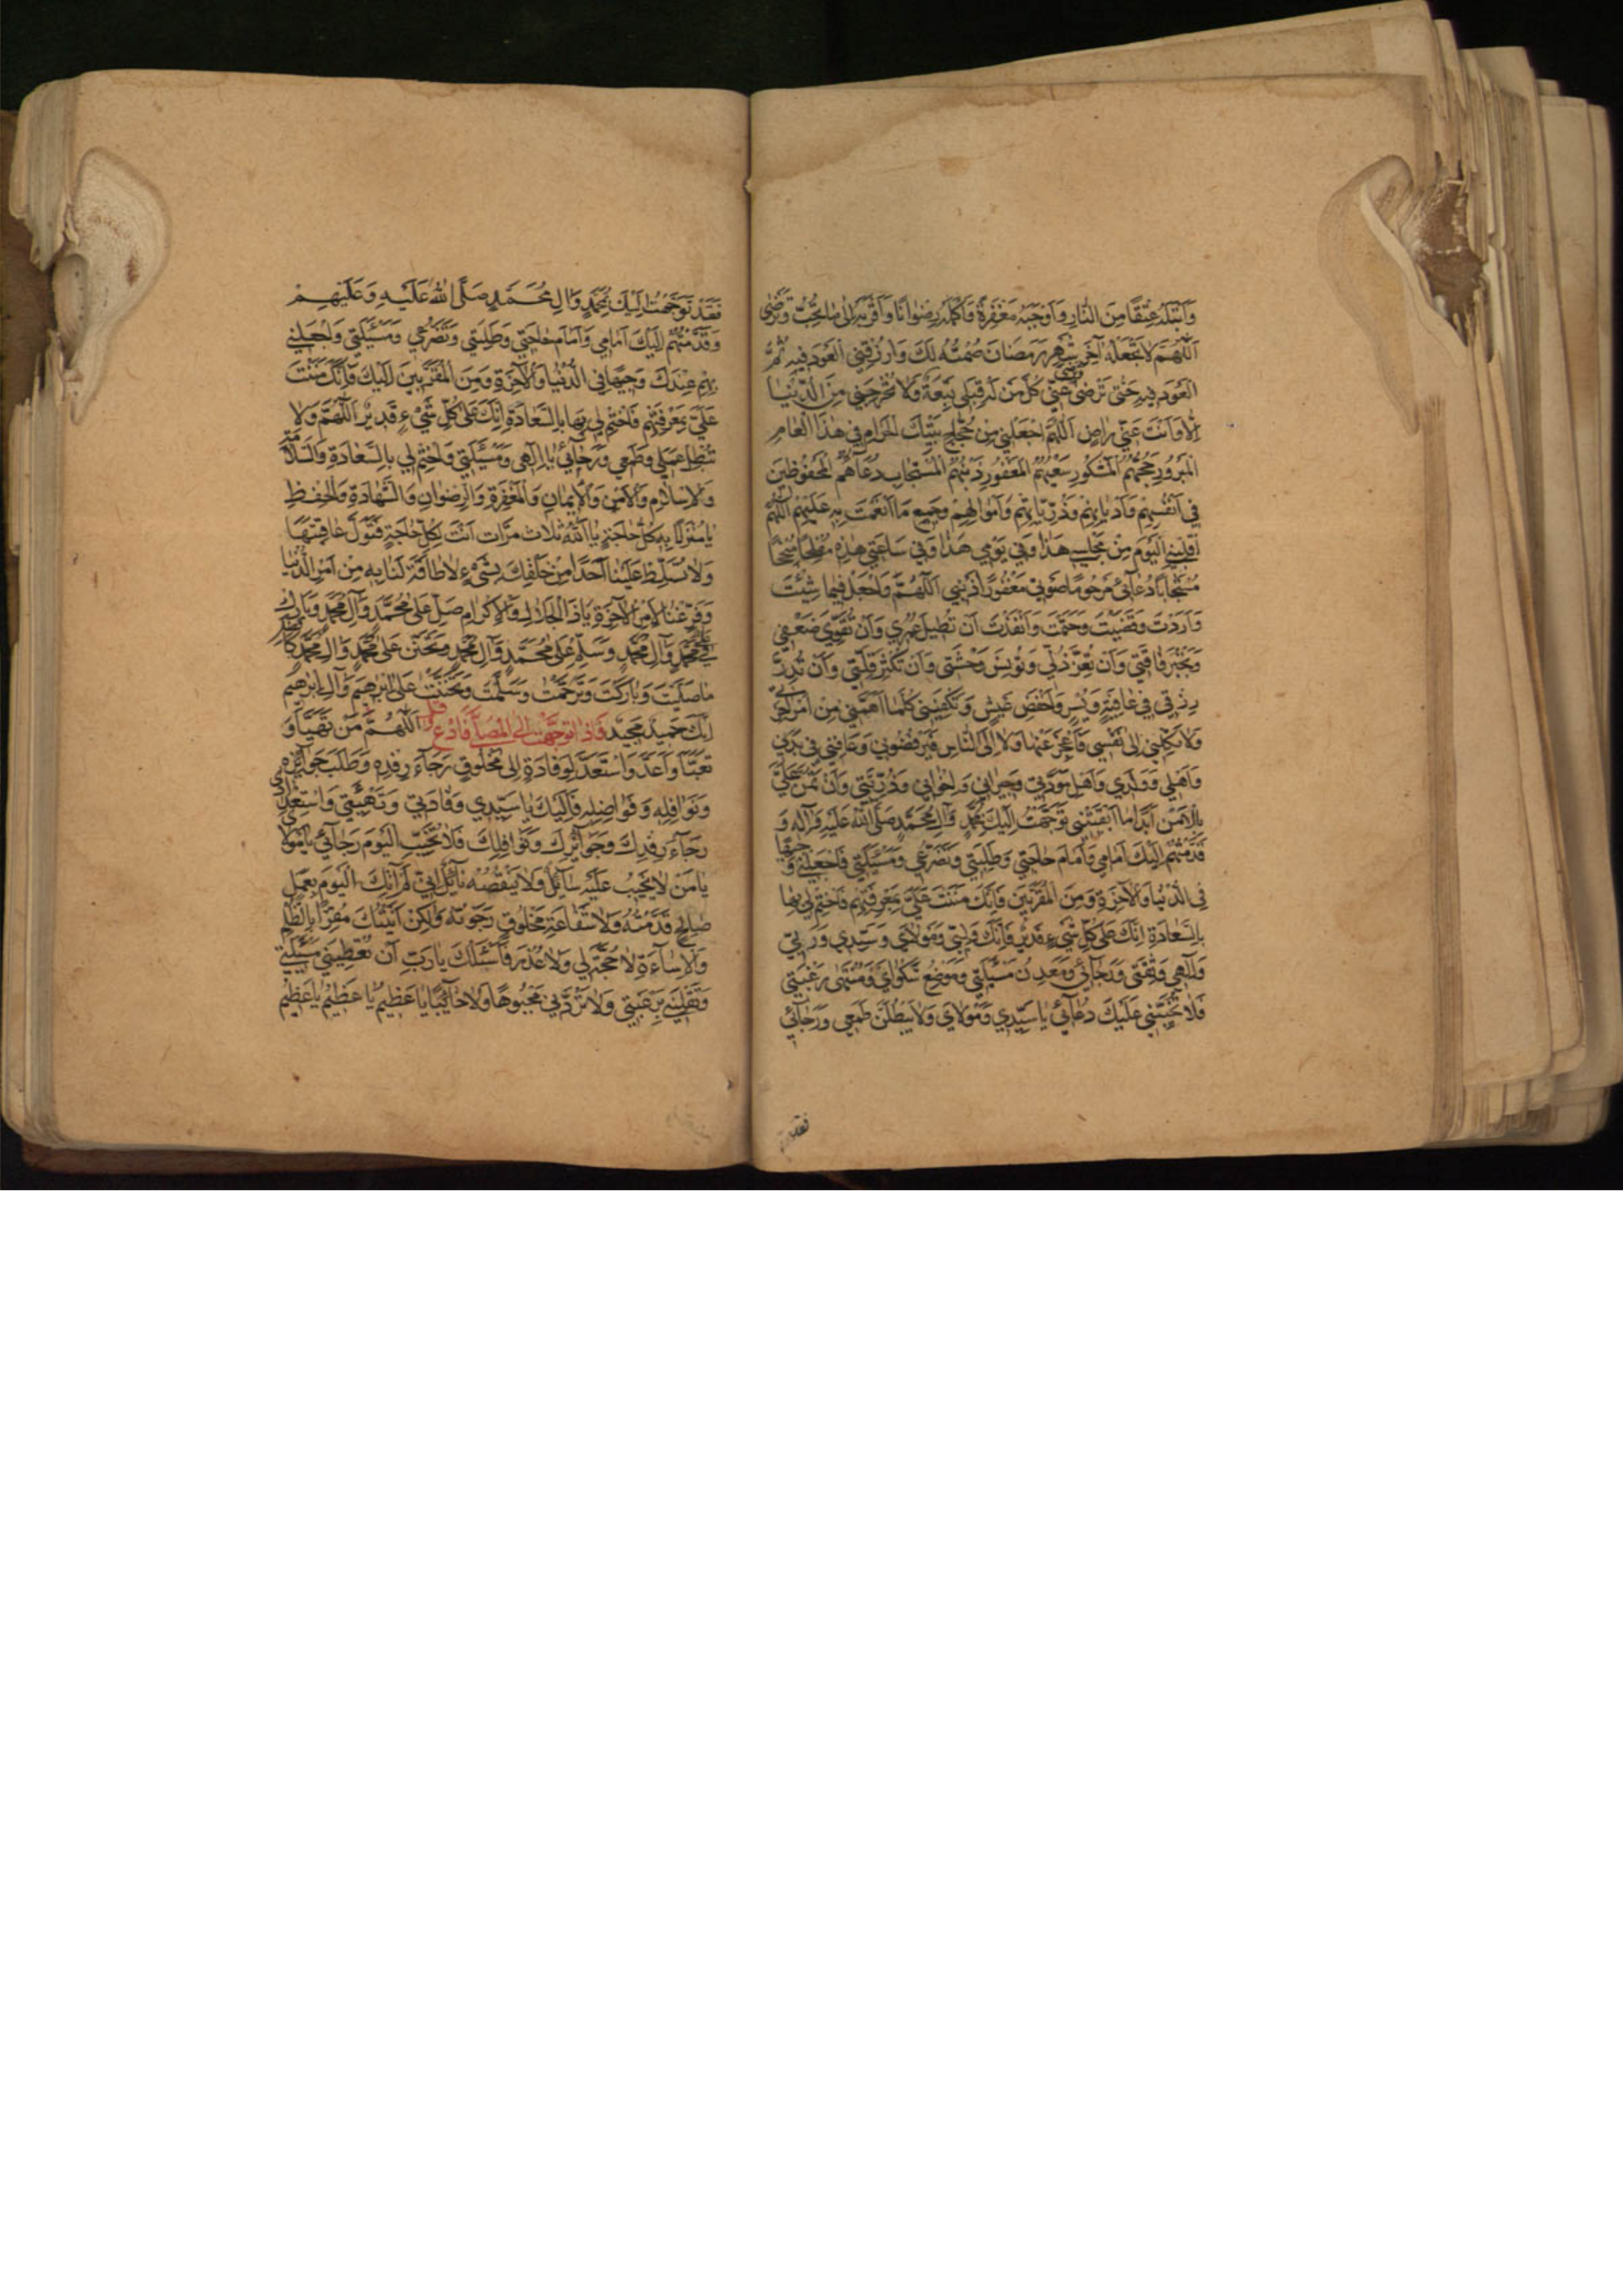 وَاَبْتَلَهُ عِتْقًا مِنَ النّارِ وَاَوْجَبَهُ مَغْفِرَةً وَاَكْمَلَهُ رِضْوانًا وَاَقْرَبَهُ اِلى ما تُحِبُّ وَتَرْضى
اَللّهُمَّ لا تَجْعَلْهُ آخِرَ شَهْرِ رَمَضانَ صُمْتُهُ لَكَ وَارْزُقْنِي الْعَوْدَ فيهِ ثُمَّ
الْعَوْدَ فيهِ حَتّى تَرْضى وترضى عَنّي كُلَّ مَنْ لَهُ قِبَلي تَبِعَةٌ وَلا تُخْرِجْني مِنَ الدُّنْيا
اِلّا وَاَنْتَ عَنّي راضٍ اَللّهُمَّ اجْعَلْني مِنْ حُجّاجِ بَيْتِكَ الْحَرامِ في هذَا الْعامِ
الْمَبْرُورِ حَجُّهُمُ الْمَشْكُورِ سَعْيُهُمُ الْمَغْفُورِ ذَنْبُهُمُ الْمُسْتَجابِ دُعآؤُهُمُ الْمَحْفُوظينَ
في اَنْفُسِهِمْ وَاَدْيانِهِمْ وَذُرِّيّاتِهِمْ وَاَمْوالِهِمْ وَجَميعِ ما اَنْعَمْتَ بِهِ عَلَيْهِمْ اَللّهُمَّ
اقْلِبْنِي الْيَوْمَ مِنْ مَجْلِسي هذا وَفي يَوْمي هذا وَفي ساعَتي هذِهِ مُفْلِحًا مُنْجِحًا
مُسْتَجابًا دُعآئي مَرْحُومًا صَوْتي مَغْفُورًا ذَنْبي اَللّهُمَّ وَاجْعَلْ فيما شِئْتَ
وَاَرَدْتَ وَقَضَيْتَ وَحَتَمْتَ وَاَنْفَذْتَ اَنْ تُطيلَ عُمْري وَاَنْ تُقَوِّيَ ضَعْفي
وَتَجْبُرَ فاقَتي وَاَنْ تُعِزَّ ذُلّي وَتُونِسَ وَحْشَتي وَاَنْ تُكَثِّرَ قِلَّتي وَاَنْ تُدِرَّ
رِزْقي في عافِيَةٍ وَيُسْرٍ وَخَفْضِ عَيْشٍ وَتَكْفِيَني كُلَّما اَهَمَّني مِنْ اَمْرِ آخِرَتي
وَلا تَكِلْني اِلى نَفْسي فَاَعْجِزَ عَنْها وَلا اِلَى النّاسِ فَيَرْفُضُوني وَعافِني في بَدَني
وَاَهْلي وَوَلَدي وَاَهْلِ مَوَدَّتي وَجيراني وَاِخْواني وَذُرِّيَّتي وَاَنْ تَمُنَّ عَلَيَّ
بِالْاَمْنِ اَبَدًا ما اَبْقَيْتَني تَوَجَّهْتُ اِلَيْكَ بِمُحَمَّدٍ وَآلِ مُحَمَّدٍ صَلَّى اللّهُ عَلَيْهِ وَآلِهِ وَ
قَدَّمْتُهُمْ اِلَيْكَ اَمامي وَاَمامَ حاجَتي وَطَلِبَتي وَتَضَرُّعي وَمَسْئَلَتي فَاجْعَلْني وَجيهًا
فِي الدُّنْيا وَالْآخِرَةِ وَمِنَ الْمُقَرَّبينَ فَاِنَّكَ مَنَنْتَ عَلَيَّ بِمَعْرِفَتِهِمْ فَاخْتِمْ لي بِها
بِالسَّعادَةِ اِنَّكَ عَلى كُلِّ شَيْءٍ قَديرٌ فَاِنَّكَ وَلِيّي وَمَوْلايَ وَسَيِّدي وَرَبّي
وَاِلهي وَثِقَتي وَرَجآئي وَمَعْدِنُ مَسْئَلَتي وَمَوْضِعُ شَكْوايَ وَمُنْتَهى رَغْبَتي
فَلا تُخَيِّبَنّي عَلَيْكَ دُعآئي يا سَيِّدي وَمَوْلايَ وَلا تُبْطِلَنَّ طَمَعي وَرَجآئي
فقد
فَقَدْ تَوَجَّهْتُ اِلَيْكَ بِمُحَمَّدٍ وَالِ مُحَمَّدٍ صَلَّى اللّهُ عَلَيْهِ وَعَلَيْهِمْ
وَقَدَّمْتُهُمْ اِلَيْكَ اَمامي وَاَمامَ حاجَتي وَطَلِبَتي وَتَضَرُّعي وَمَسْئَلَتي وَاجْعَلْني
بِهِمْ عِنْدَكَ وَجيهًا فِي الدُّنْيا وَالْآخِرَةِ وَمِنَ الْمُقَرَّبينَ اِلَيْكَ فَاِنَّكَ مَنَنْتَ
عَلَيَّ بِمَعْرِفَتِهِمْ فَاخْتِمْ لي بِها بِالسَّعادَةِ اِنَّكَ عَلى كُلِّ شَيْءٍ قَديرٌ اَللّهُمَّ وَلا
تُبْطِلْ عَمَلي وَطَمَعي وَرَجآئي يا اِلهي وَمَسْئَلَتي وَاخْتِمْ لي بِالسَّعادَةِ وَالسَّلامَةِ
وَالْاِسْلامِ وَالْاَمْنِ وَالْايمانِ وَالْمَغْفِرَةِ وَالرِّضْوانِ وَالشَّهادَةِ وَالْحِفْظِ
يا مَنْزُولًا بِهِ كُلُّ حاجَةٍ يا اَللّهُ ثَلاثَ مَرّاتٍ اَنْتَ لِكُلِّ حاجَةٍ فَتَوَلَّ عاقِبَتَها
وَلا تُسَلِّطْ عَلَيْنا اَحَدًا مِنْ خَلْقِكَ بِشَيْءٍ لا طاقَةَ لَنا بِهِ مِنْ اَمْرِ الدُّنْيا
وَفَرِّغْنا لِاَمْرِ الْآخِرَةِ يا ذَا الْجَلالِ وَالْاِكْرامِ صَلِّ عَلى مُحَمَّدٍ وَآلِ مُحَمَّدٍ وَبارِكْ
عَلى مُحَمَّدٍ وَآلِ مُحَمَّدٍ وَسَلِّمْ عَلى مُحَمَّدٍ وَآلِ مُحَمَّدٍ وَتَحَنَّنْ عَلى مُحَمَّدٍ وَالِ مُحَمَّدٍ كَاَفْضَلِ
ما صَلَّيْتَ وَبارَكْتَ وَتَرَحَّمْتَ وَسَلَّمْتَ وَتَحَنَّنْتَ عَلى اِبْرهيمَ وَآلِ اِبْرهيمَ
اِنَّكَ حَميدٌ مَجيدٌ فَاِذا تَوَجَّهْتَ اِلَى الْمُصَلّى فَادْعُ وقل اَللّهُمَّ مَنْ تَهَيَّأَ وَ
تَعَبَّأَ وَاَعَدَّ وَاسْتَعَدَّ لِوِفادَةٍ اِلى مَخْلُوقٍ رَجآءَ رِفْدِهِ وَطَلَبَ جَوآئِزِهِ
وَنَوافِلِهِ وَفَواضِلِهِ فَاِلَيْكَ يا سَيِّدي وَفادَتي وَتَهْيِئَتي وَاسْتِعْدادي
رَجآءَ رِفْدِكَ وَجَوآئِزِكَ وَنَوافِلِكَ فَلا تُخَيِّبِ الْيَوْمَ رَجآئي يا مَوْلايَ
يا مَنْ لا يَخيبُ عَلَيْهِ سآئِلٌ وَلا يَنْقُصُهُ نآئِلٌ اِنّي لَمْ آتِكَ الْيَوْمَ بِعَمَلٍ
صالِحٍ قَدَّمْتُهُ وَلا شَفاعَةِ مَخْلُوقٍ رَجَوْتُهُ وَلكِنْ اَتَيْتُكَ مُقِرًّا بِالظُّلْمِ
وَالْاِسآءَةِ لا حُجَّةَ لي وَلا عُذْرَ فَاَسْئَلُكَ يا رَبِّ اَنْ تُعْطِيَني مَسْئَلَتي
وَتَقْلِبَني بِرَغْبَتي وَلا تَرُدَّني مَجْبُوهًا وَلا خآئِبًا يا عَظيمُ يا عَظيمُ يا عَظيمُ